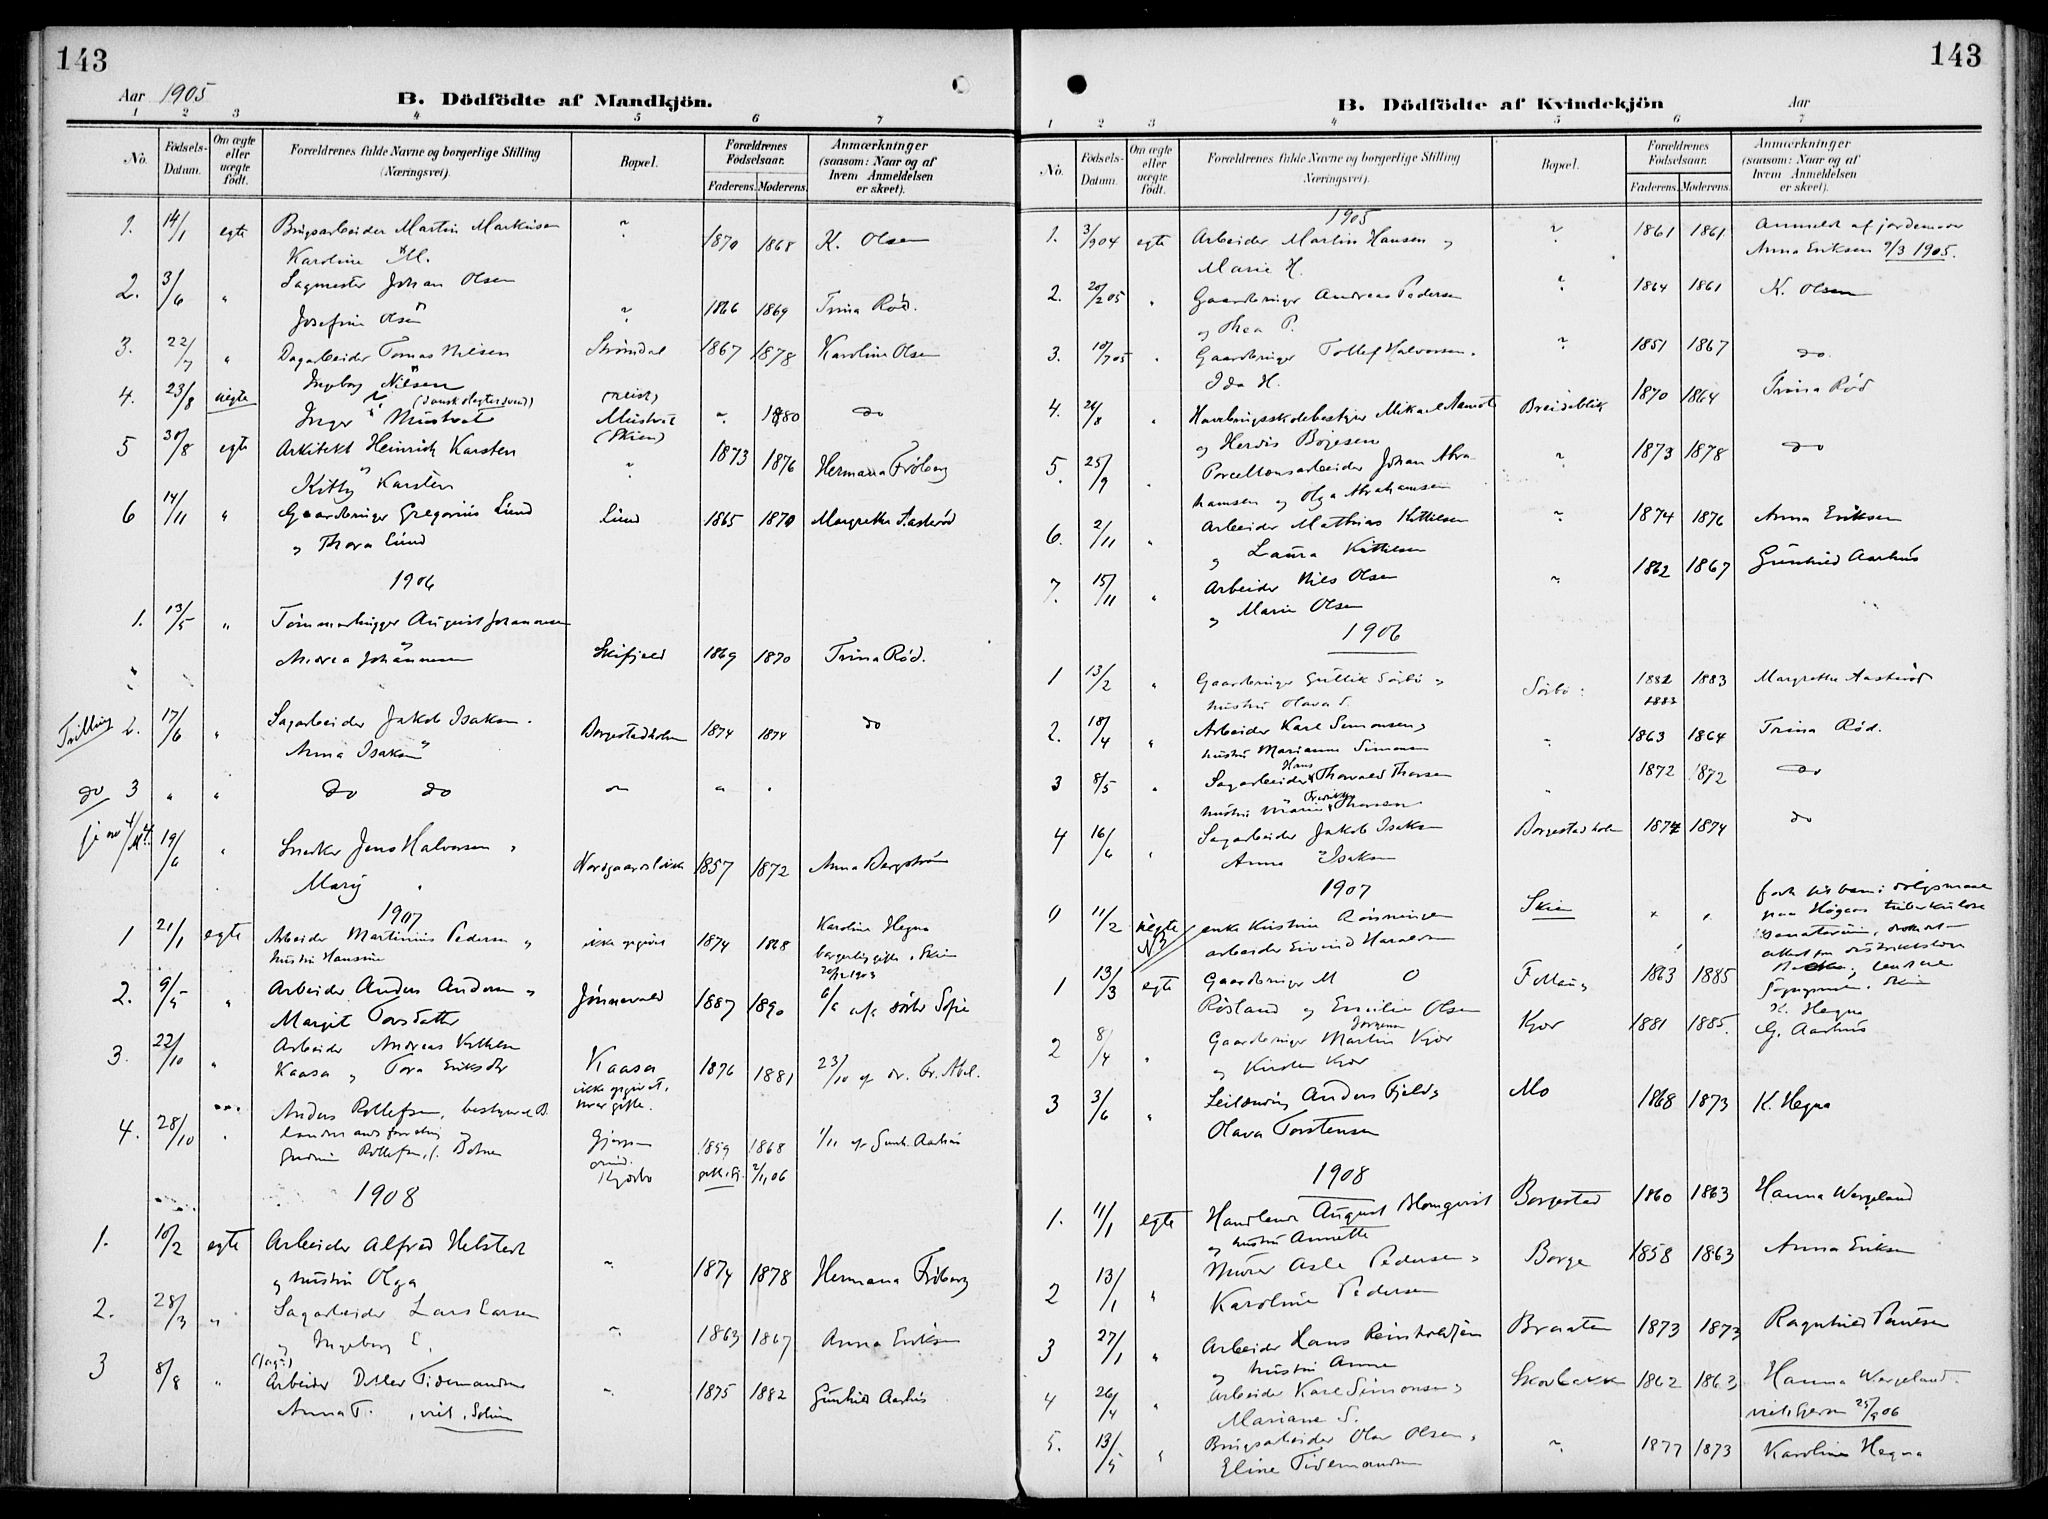 143
Aar 1905
B. Dödfödte af Mandkjön.
1 2 3 4 5 6 7
No.
Födsels-
Datum.
Om ægte
eller
uægte
födt.
Forældrenes fulde Navne og borgerlige Stilling
(Næringsvei).
Bopæl.
Forældrenes
Födselsaar.
Faderens. Moderens.
Anmærkninger
(saasom: Naar og af
hvem Anmeldelsen
er skeet).
1. 14/1 egte Brugsarbeider Martin Markusen " 1870 1868 K. Olsen
Karoline M.
2. 3/6 " Sagmester Johan Olsen
Josefine Olsen " 1866 1869 Trina Röd.
3. 22/7 " Dagarbeider Tomas Nilsen Strömdal 1867 1878 Karoline Olsen
Ingeborg Nilsen
4. 23/8 uegte Inger Mustvat Mustvat " 1880 do
(Skien)
5 30/8 egte Arkitekt Heinrich Karsten " 1873 1876 Hermana Fröberg
Kitty Karsten
6 14/11 " Gaardbruger Gregorius Lund Lund 1865 1870 Margrethe Aasteröd
og Thora Lund
1906
1. 13/5 " Tömmerhugger August Johannesen
Andrea Johannesen Skifjeld 1869 1870 Trina Röd.
Trilling 2. 17/6 " Sagarbeider Jakob Isaksen Borgestadholm 1874 1874 do
Anna Isaksen
do 3 " " do do " " "
19/6 " Snedker Jens Halvorsen
Mary " 1857 1872 Anna Bergström
1907
1 21/1 egte Arbeider Martinius Pedersen " ikke opgivet 1874 1868 Karoline Hegna
hustru Hansine borgerlig gifte i Skien
1903
2. 9/5 " Arbeider Anders Andersen " Jönnevald 1887 1890
Margit Torsdatter
3. 22/10 " Arbeider Andreas Kittilsen
Kaasa og Tora Eriksdtr Kaasa 1876 1881 23/10 af dr. Fr. Abel.
ikke opgivet,
hvor gifte.
4. 28/10 " Anders Rollefsen, bestyrer
Gjerpen 1859 1868 1/11 af Gunh. Aarhus
2/1, 06
1908
1. 10/2 egte Arbeider Alfred Helstedt
og hustru Olga " 1874 1878 Hermana Fröberg
2. 28/3 " Sagarbeider Lars Larsen
og Ingeborg L. " 1863 1867 Anna Eriksen
3 8/8 " Arbeider Ditlev Tidemandsen
Anna T. " 1875 1882 Gunhild Aarhus
143
B. Dödfödte af Kvindekjön
Aar
1 2 3 4 5 6 7
No.
Födsels-
Datum.
Om ægte
eller
uægte
födt.
Forældrenes fulde Navne og borgerlige Stilling
Næringsvei).
Bopæl.
Forældrenes
Födselsaar.
Faderens. Moderens.
Anmærkninger
(saasom: Naar og af
hvem Anmeldelsen
er skeet).
1905
1. 3/9 04 egte Arbeider Martin Hansen og " 1861 1861 Anmeldt af jordemor
Marie H. Anna Eriksen 9/3 1905.
2. 20/2 05 " Gaardbruger Andreas Pedersen " 1864 1861 K. Olsen
og Thea P.
3. 10/7 05 " Gaardbruger Tollef Halvorsen. " 1851 1867 do.
Ida H.
4. 24/8 " Havebrugsskolebestyrer Mikael Aamodt Breideblik 1870 1864 Trina Röd
og Herdis Bojesen
5. 25/9 " Porcellænsarbeider Johan Abra- " 1873 1878 do
hamsen og Olga Abrahamsen
6. 2/11 " Arbeider Mathias Kittilsen " 1874 1876 Anna Eriksen
og Laura Kittilsen
7. 15/11 " Arbeider Nils Olsen " 1862 1867 Gunhild Aarhus
og Marie Olsen
1906
1 13/2 " Gaardbruger Gullik Sörbö og Sörbö 1882 1883 Margrethe Aasteröd
hustru Olava S. 1883
2. 18/4 " Arbeider Karl Simonsen og " 1863 1864 Trina Röd.
hustru Marianne Simonsen
3 8/5 " Sagarbeider Hans Thorvald Thorsen " 1872 1872 do
hustru Marie Thorsen
4 16/6 " Sagarbeider Jakob Isaksen Borgestadholm 1874 1874 do
Anna Isaksen
1907
11/2 uegte enke Kristine Rönningen Skien
arbeider Eivind Haraldsen
1 13/3 egte Gaardbruger M O 1863 1885
Rösland og Emilie Olsen K. Hegna
2 8/4 " Gaardbruger Martin Jörgensen Kjær Kjær 1881 1885. G. Aarhus
og Kirsten Kjær
3 3/6 " Leilænding Anders Fjeld og Mo 1868 1873 K. Hegna
Olava Torstensen
1908
1. 11/1 egte Handlende August Blomqvist Borgestad 1860 1863 Hanna Wergeland
og hustru Annette
2 13/1 " Murer Asle Pedersen og Borge 1858 1863 Anna Eriksen
Karoline Pedersen
3 27/1 " Arbeider Hans Reinholdtsen Braaten 1873 1873 Ragnhild Paulsen
og hustru Anne
4 26/4 " Arbeider Karl Simonsen og 1862 1863 Hanna Wergeland
Mariane S. 25/9 06
5. 13/5 " Brugsarbeider Olav Olsen, " 1877 1873 Karoline Hegna
Eline Tidemandsen